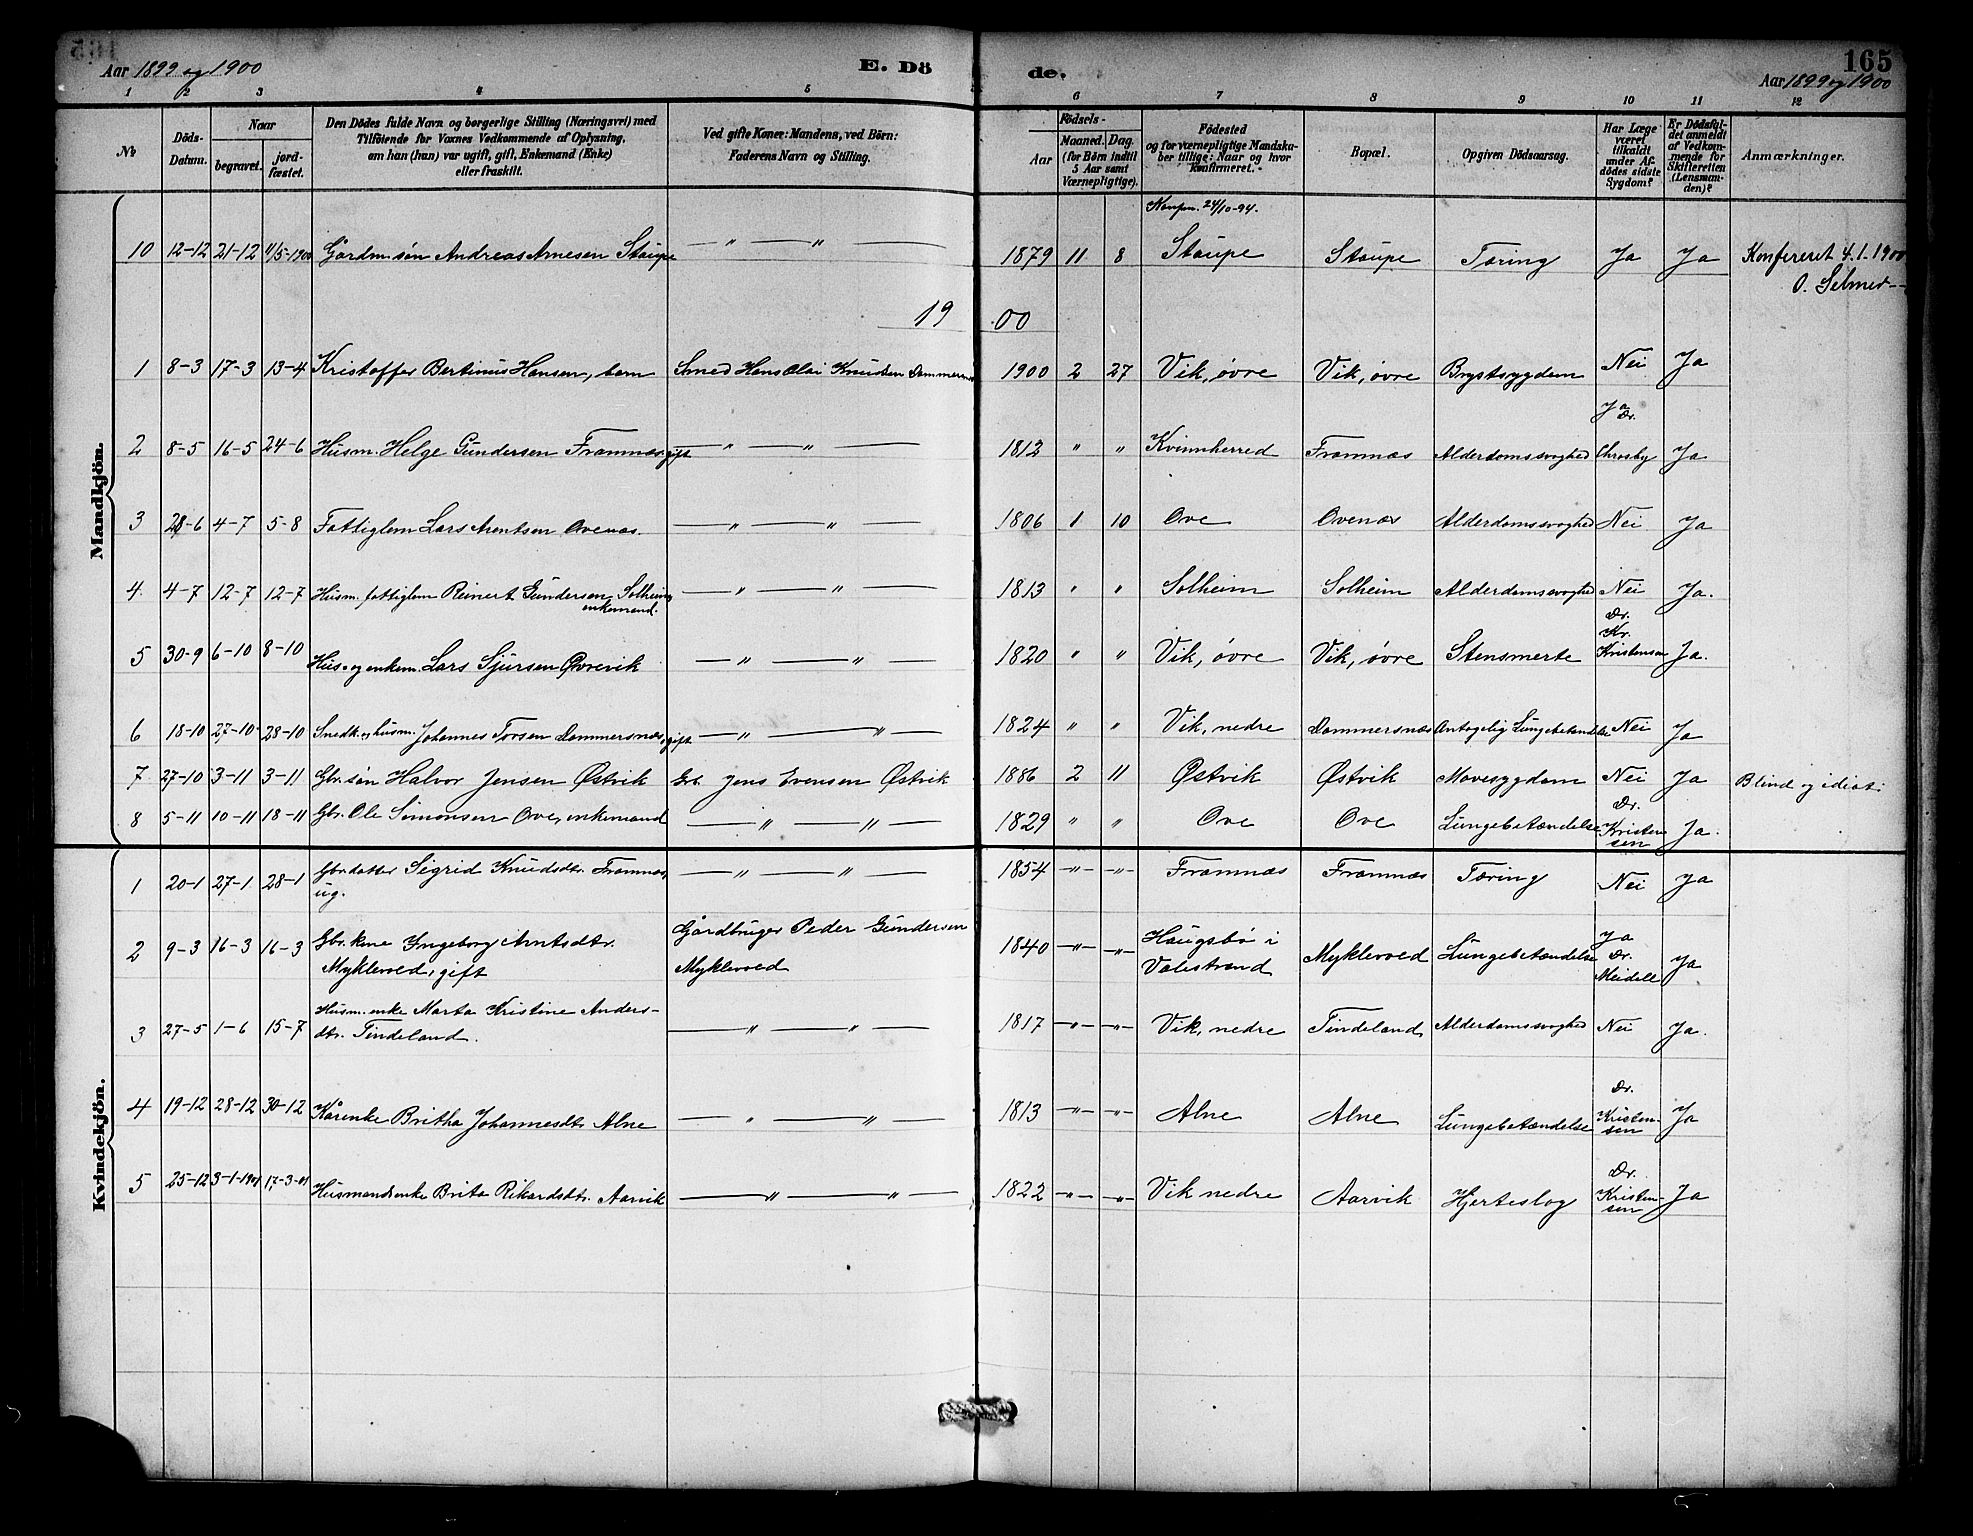 Aar 1899 og 1900
E. Dö
de.
165
Aar 1899 og 1900
1 2 3 4 5 6 7 8 9 10 11 12
№
Döds-Datum.
Naar
begravet.
jord-fæstet.
Den Dödes fulde Navn og borgerlige Stilling (Næringsvei) med
Tilföiende for Voxnes Vedkommende af Oplysning,
om han (hun) var ugift, gift, Enkemand (Enke)
eller fraskilt.
Ved gifte Koner: Mandens, ved Börn:
Faderens Navn og Stilling.
Födsels-
Aar
Maaned. Dag.
(for Börn indtil
5 Aar samt
Værnepligtige).
Födested
og for værnepligtige Mandska-
ber tillige: Naar og hvor
konfirmeret.
Bopæl.
Opgiven Dödsaarsag.
Har Læge
været
tilkaldt
under Af-
dödes sidste
Sygdom?
Er Dödsfal-
det anmeldt
af Vedkom-
mende for
Skifteretten
(Lensman-
den)?
Anmærkninger.
Mandkjön.
Konfirm. 24/10-94.
10 12-12 21-12 11/5-1900 Gårdm.søn Andreas Arnesen Staupe — " — " — 1879 11 8 Staupe Staupe Tæring Ja Ja Konfereret 4.1.1900
O. Selmer
19 00
1 8-3 17-3 13-4 Kristoffer Bertinius Hansen, barn Smed Hans Olai Knudsen Dommersnæs 1900 2 27 Vik, øvre Vik, øvre Brystsygdom Nei Ja
2 8-5 16-5 24-6 Husm. Helge Gundersen Framnæs, gift — " — " — 1812 " " Kvinnherred Framnæs Alderdomssvaghed Ja Dr. Ja
3 28-6 4-7 5-8 Fattiglem Lars Arentsen Ovenæs. — " — " — 1806 1 10 Ove Ovenæs Alderdomssvaghed Nei Ja
4. 4-7 12-7 12-7 Husm. fattiglem Reinert Gundersen Solheim, enkemand. — " — " — 1813 " " Solheim Solheim Alderdomssvaghed Nei Ja.
5 30-9 6-10 8-10 Hus- og enkem. Lars Sjursen Øvrevik — " — " — 1820 " " Vik, øvre Vik, øvre Stensmerte Dr. Kr. Kristensen Ja.
6 18-10 27-10 28-10 Snedk. og husm. Johannes Torsen Dommersnæs, gift — " — " — 1824 " " Vik, nedre Dommersnæs Antagelig Lungebetændelse Nei Ja
7 27-10 3-11 3-11 Gbr.søn Halvor Jensen Østvik Gb. Jens Evensen Østvik 1886 2 11 Østvik Østvik Mavesygdom Nei Ja Blind og idiot.
8 5-11 10-11 18-11 Gbr. Ole Simonsen Ove, enkemand — " — " — 1829 " " Ove Ove Lungebetændelse Dr. Kristensen Ja.
Kvindekjön.
1 20-1 27-1 28-1 Gbr.datter Sigrid Knudsdtr. Framnæs, ug. — " — " — 1854 -"- -"- Framnæs Framnæs Tæring Nei Ja
2 9-3 16-3 16-3 Gbr. kone Ingeborg Arntsdtr. Myklevold, gift Gårdbruger Peder Gundersen Myklevold 1840 -"- -"- Haugsbø i Valestrand Myklevold Lungebetændelse Ja Dr. Meidell Ja
3 27-5 1-6 15-7 Husm. enke Marta Kristine Anders-
dtr. Tindeland. — " — " — 1817 -"- -"- Vik, nedre Tindeland Alderdomssvaghed Nei Ja.
4 19-12 28-12 30-12 Kårenke Britha Johannesdtr Alne — " — " — 1813 -"- -"- Alne Alne Lungebetændelse Dr. Kristensen Ja
5 25-12 3-1-1901 17-3-01 Husmandsenke Brita Rikardsdtr. Aarvik — " — " — 1822 -"- -"- Vik nedre Aarvik Hjerteslag Dr. Kristensen Ja